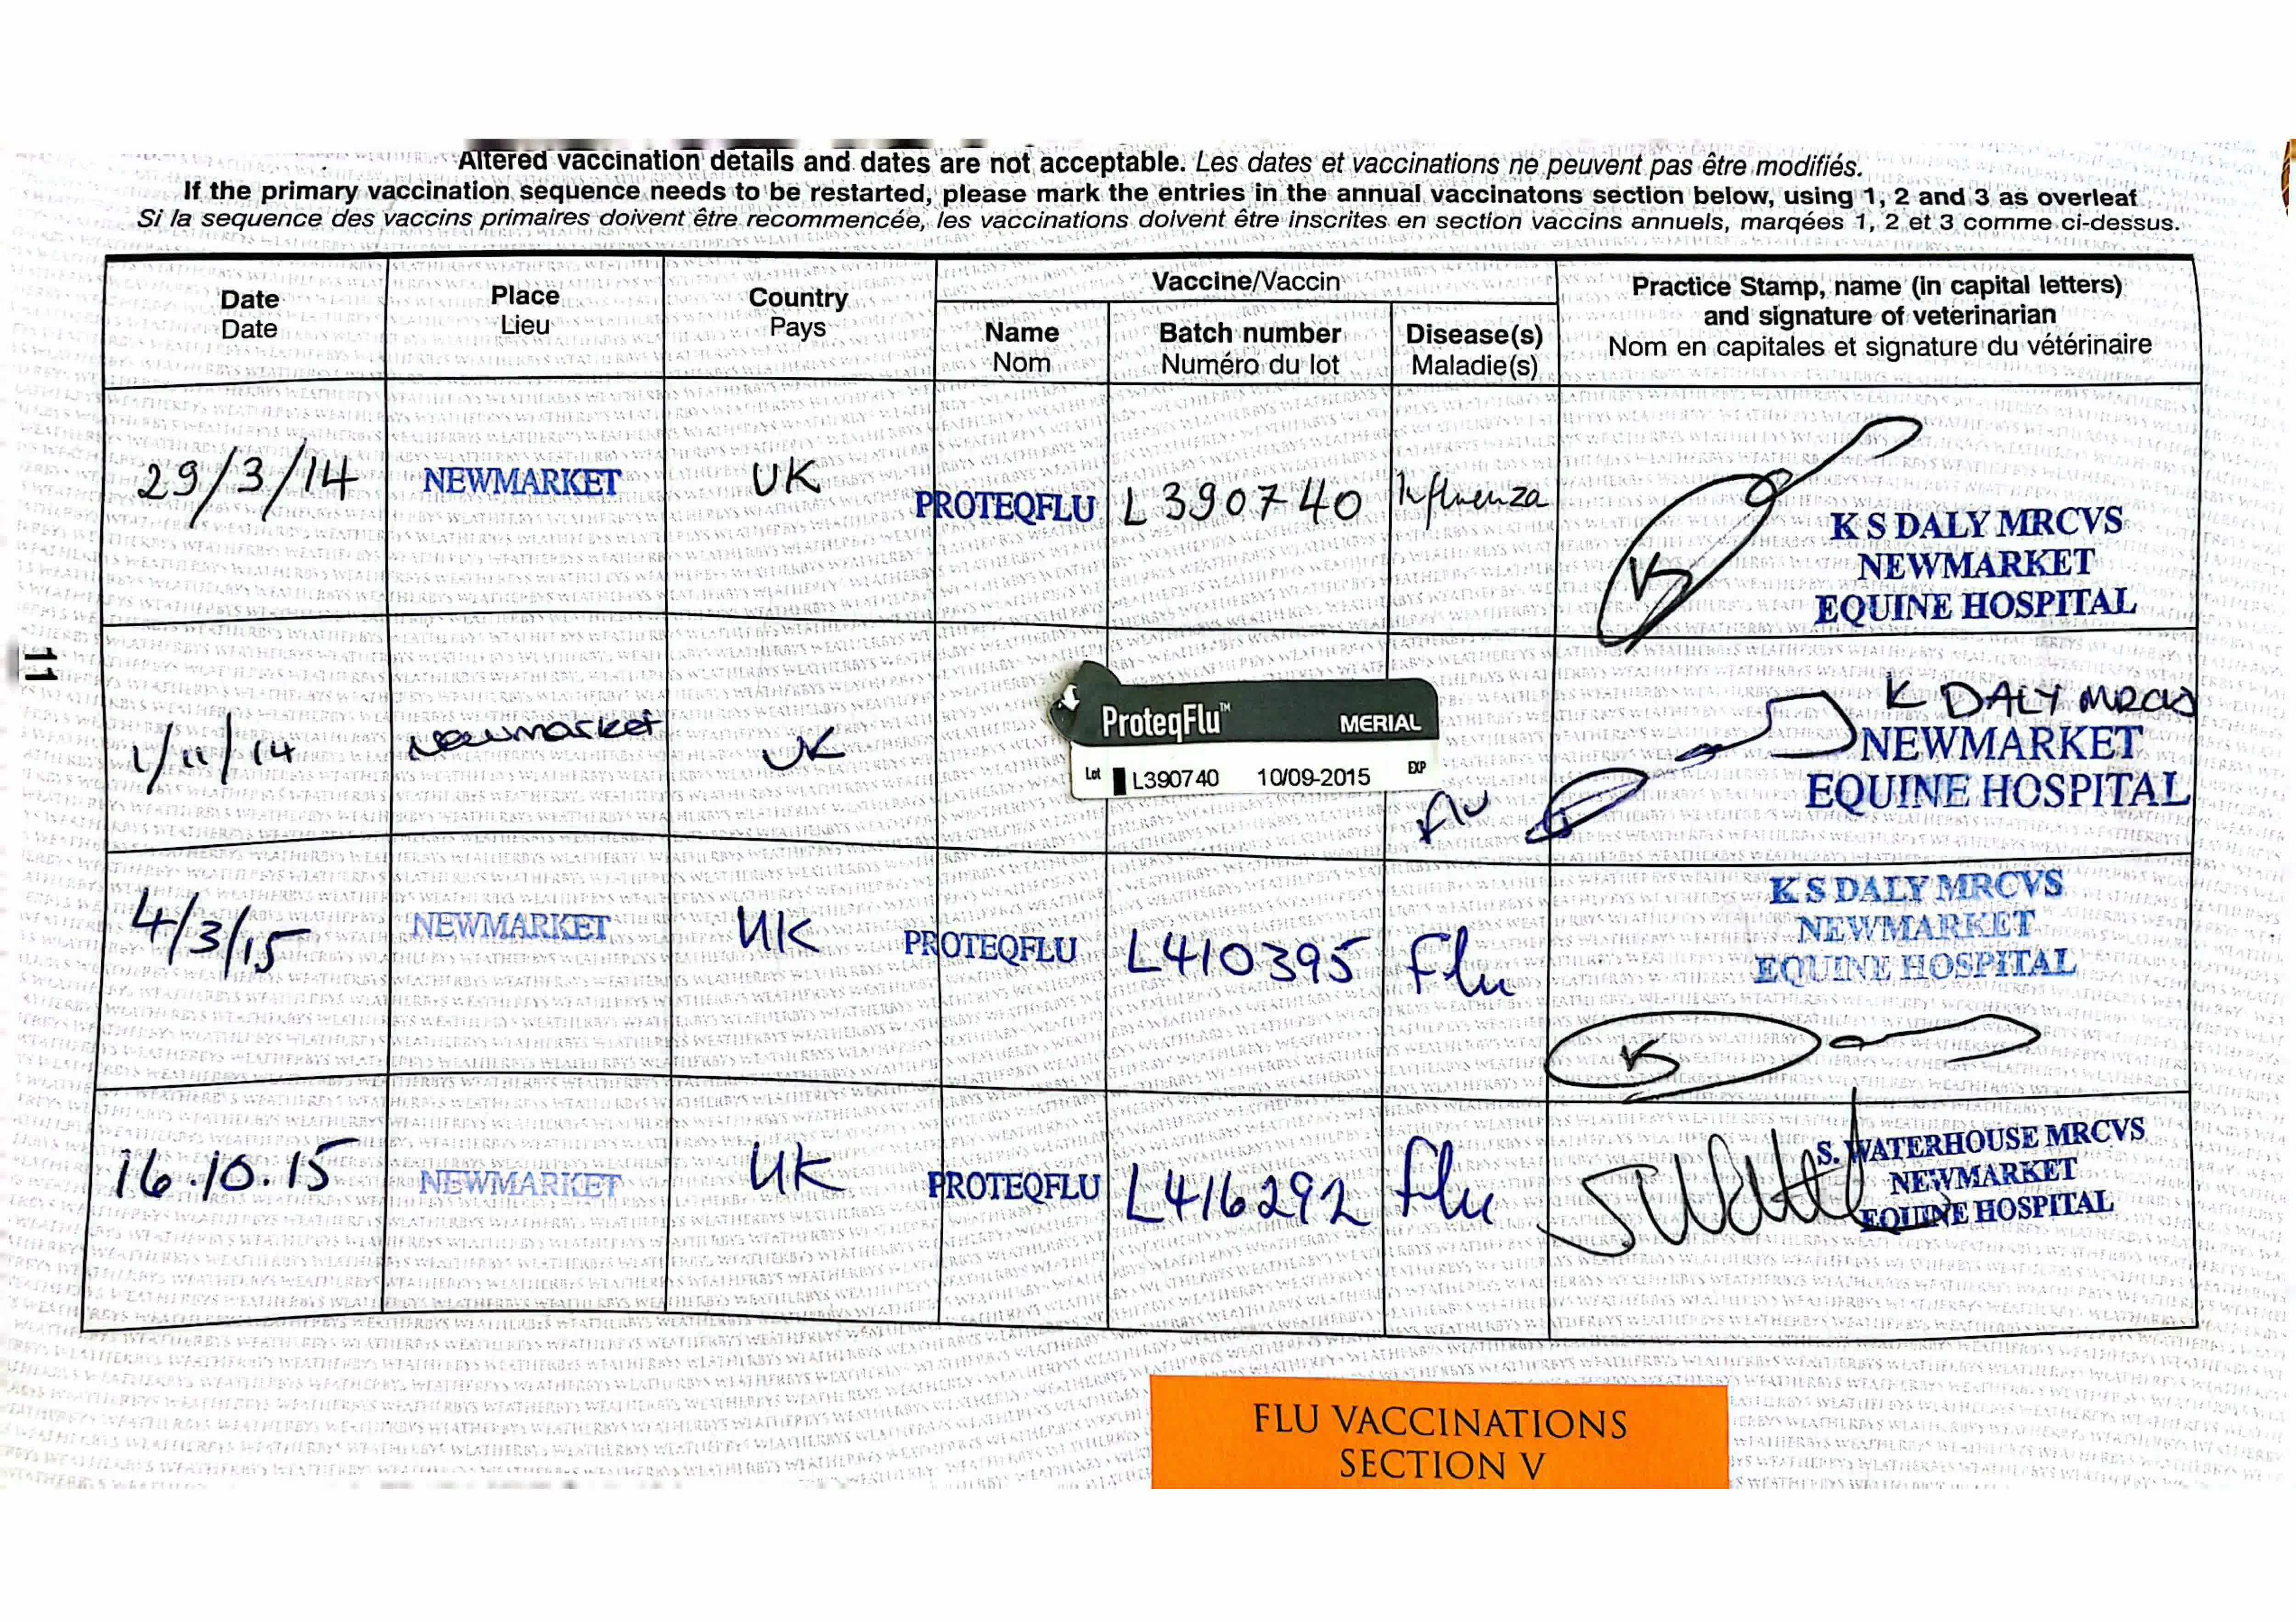 Altered vaccination details and dates are not acceptable. Les dates et vaccinations ne peuvent pas être modifiés.
If the primary vaccination sequence needs to be restarted, please mark the entries in the annual vaccinatons section below, using 1, 2 and 3 as overleaf
Si la sequence des vaccins primaires doivent être recommencée, les vaccinations doivent être inscrites en section vaccins annuels, marqées 1, 2 et 3 comme ci-dessus.
Date
Date
Place
Lieu
Country
Pays
Vaccine/Vaccin
Name
Nom
Batch number
Numéro du lot
Disease(s)
Maladie(s)
Practice Stamp, name (in capital letters)
and signature of veterinarian
Nom en capitales et signature du vétérinaire
29/3/14
NEWMARKET
UK
PROTEQFLU
L390740
Influenza
K S DALY MRCVS
NEWMARKET
EQUINE HOSPITAL
11
1/11/14
Newmarket
UK
ProteqFlu™ MERIAL
Lot L390740 10/09-2015 EXP
Flu
K DALY MRCVS
NEWMARKET
EQUINE HOSPITAL
4/3/15
NEWMARKET
UK
PROTEQFLU
L410395
Flu
K S DALY MRCVS
NEWMARKET
EQUINE HOSPITAL
16.10.15
NEWMARKET
UK
PROTEQFLU
L416292
Flu
S. WATERHOUSE MRCVS
NEWMARKET
EQUINE HOSPITAL
FLU VACCINATIONS
SECTION V